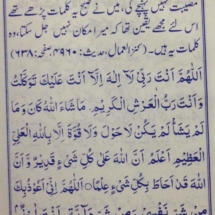 مصیبت نہیں پہنچے گی، میں نے صبح یہ کلمات پڑھے تھے
اس لئے مجھے یقین تھا کہ میرا مکان نہیں جل سکتا، وہ
کلمات یہ ہیں۔ (کنز العمال، حدیث: ۴۹۶۰، صفحہ: ۶۳۸)
اَللّٰهُمَّ اَنْتَ رَبِّیْ لَا اِلٰهَ اِلَّا اَنْتَ عَلَیْكَ تَوَكَّلْتُ
وَاَنْتَ رَبُّ الْعَرْشِ الْكَرِیْمِ، مَاشَاءَ اللّٰهُ كَانَ وَمَا
لَمْ یَشَأْ لَمْ یَكُنْ لَاحَوْلَ وَلَا قُوَّةَ اِلَّا بِاللّٰهِ الْعَلِیِّ
الْعَظِیْمِ اَعْلَمُ اَنَّ اللّٰهَ عَلٰی كُلِّ شَیْءٍ قَدِیْرٌ وَّاَنَّ
اللّٰهَ قَدْ اَحَاطَ بِكُلِّ شَیْءٍ عِلْمًا، اَللّٰهُمَّ اِنِّیْ اَعُوْذُبِكَ
مِنْ شَرِّ نَفْسِیْ وَمِنْ شَرِّ